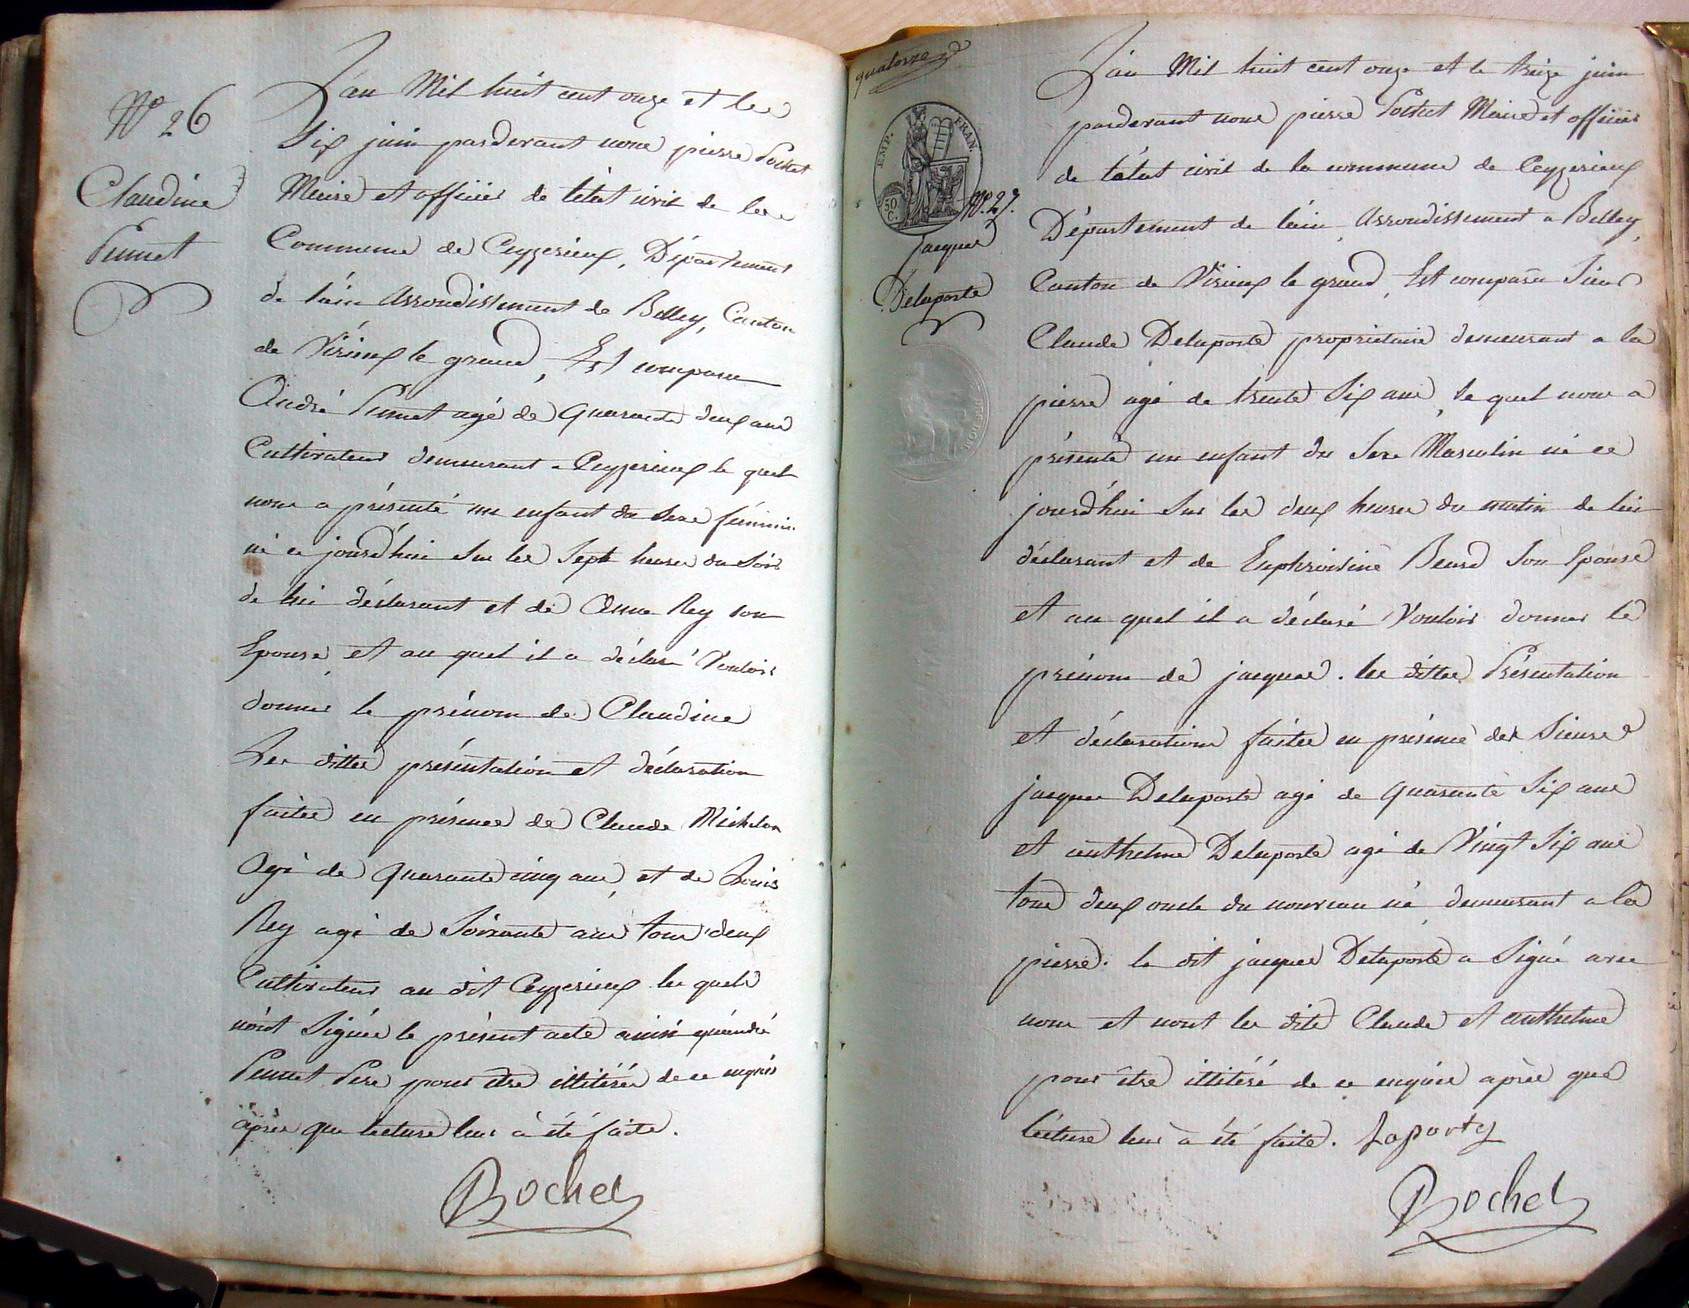 Nº 26
Claudine
Pumet
L'an Mil huit cent onze et les
Six juin pardevant nous pierre Pochet
Maire et officier de l'état civil de la
Commune de Ceyzerieux, Département
de l'ain Arrondissement de Belley, Canton
de Virieux le grand, Est comparu
André Pumet agé de quarante deux ans
Cultivateur demeurant a Ceyzerieux le quel
nous a présenté un enfant du sexe féminin
né ce jourd'hui Sur les Sept heures du Soir
de lui déclarant et de Anne Rey son
Epouse, et au quel il a déclaré Vouloir
donner le prénom de Claudine
Les dittes présentation et déclaration
faites en présence de Claude Michelon
Agé de quarante cinq ans, et de Louis
Rey agé de Soixante ans tous deux
Cultivateurs au dit Ceyzerieux les quels
n'ont Signés le présent acte ainsi qu'andré
Pumet Pere pour etre illitérés de ce enquis
après que lecture leur à été faite.
Rochet
quatorze
EMP. FRAN.
50
C.
Nº. 27.
jacques
Delaporte
L'an Mil huit cent onze et le treize juin
pardevant nous pierre Pochet Maire et officier
de l'état civil de la commune de Ceyzerieux
Département de l'ain, Arrondissement a Belley,
Canton de Virieux le grand, Est comparu Sieur
Claude Delaporte propriétaire demeurant a la
pierre agé de trente Six ans, le quel nous a
présenté un enfant du Sexe Masculin né ce
jourd'hui Sur les deux heures du matin de lui
déclarant et de Euphroisine Beard Son Epouse
et au quel il a déclaré Vouloir donner le
prénom de jacques. les dittes Présentation
et déclarations faites en présence des Sieurs
jacques Delaporte agé de quarante Six ans
et anthelme Delaporte agé de Vingt Six ans
tous deux oncle du nouveau né, demeurant a la
pierre. le dit jacques Delaporte a Signé avec
nous et nont les dits Claude et anthelme
pour être illitéré de ce enquis après que
lecture leur à été faite. Laporte
Rochet